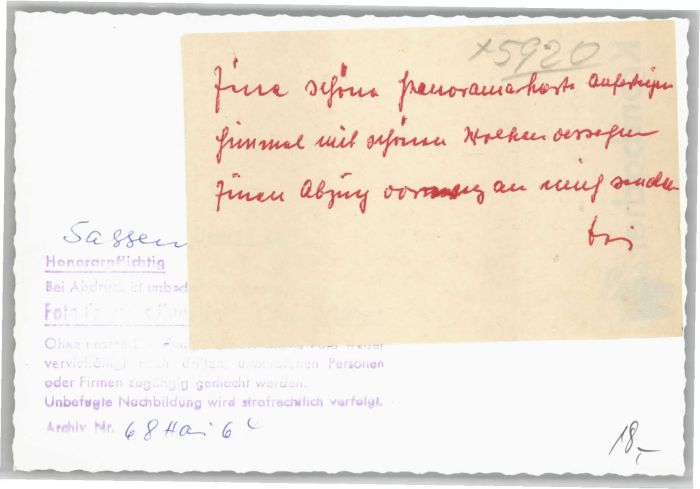 x5920
Eine schöne Panoramakarte anfertigen
Himmel mit schönen Wolken versehen
Einen Abzug vorweg an mich senden
Sassen
Honorarpflichtig
Bei Abdruck ist
Foto
Ohne unsere
vervielfältigt noch dritten, unberufenen Personen
oder Firmen zugängig gemacht werden.
Unbefugte Nachbildung wird strafrechtlich verfolgt.
Archiv Nr. 68 Hai 6
18,-